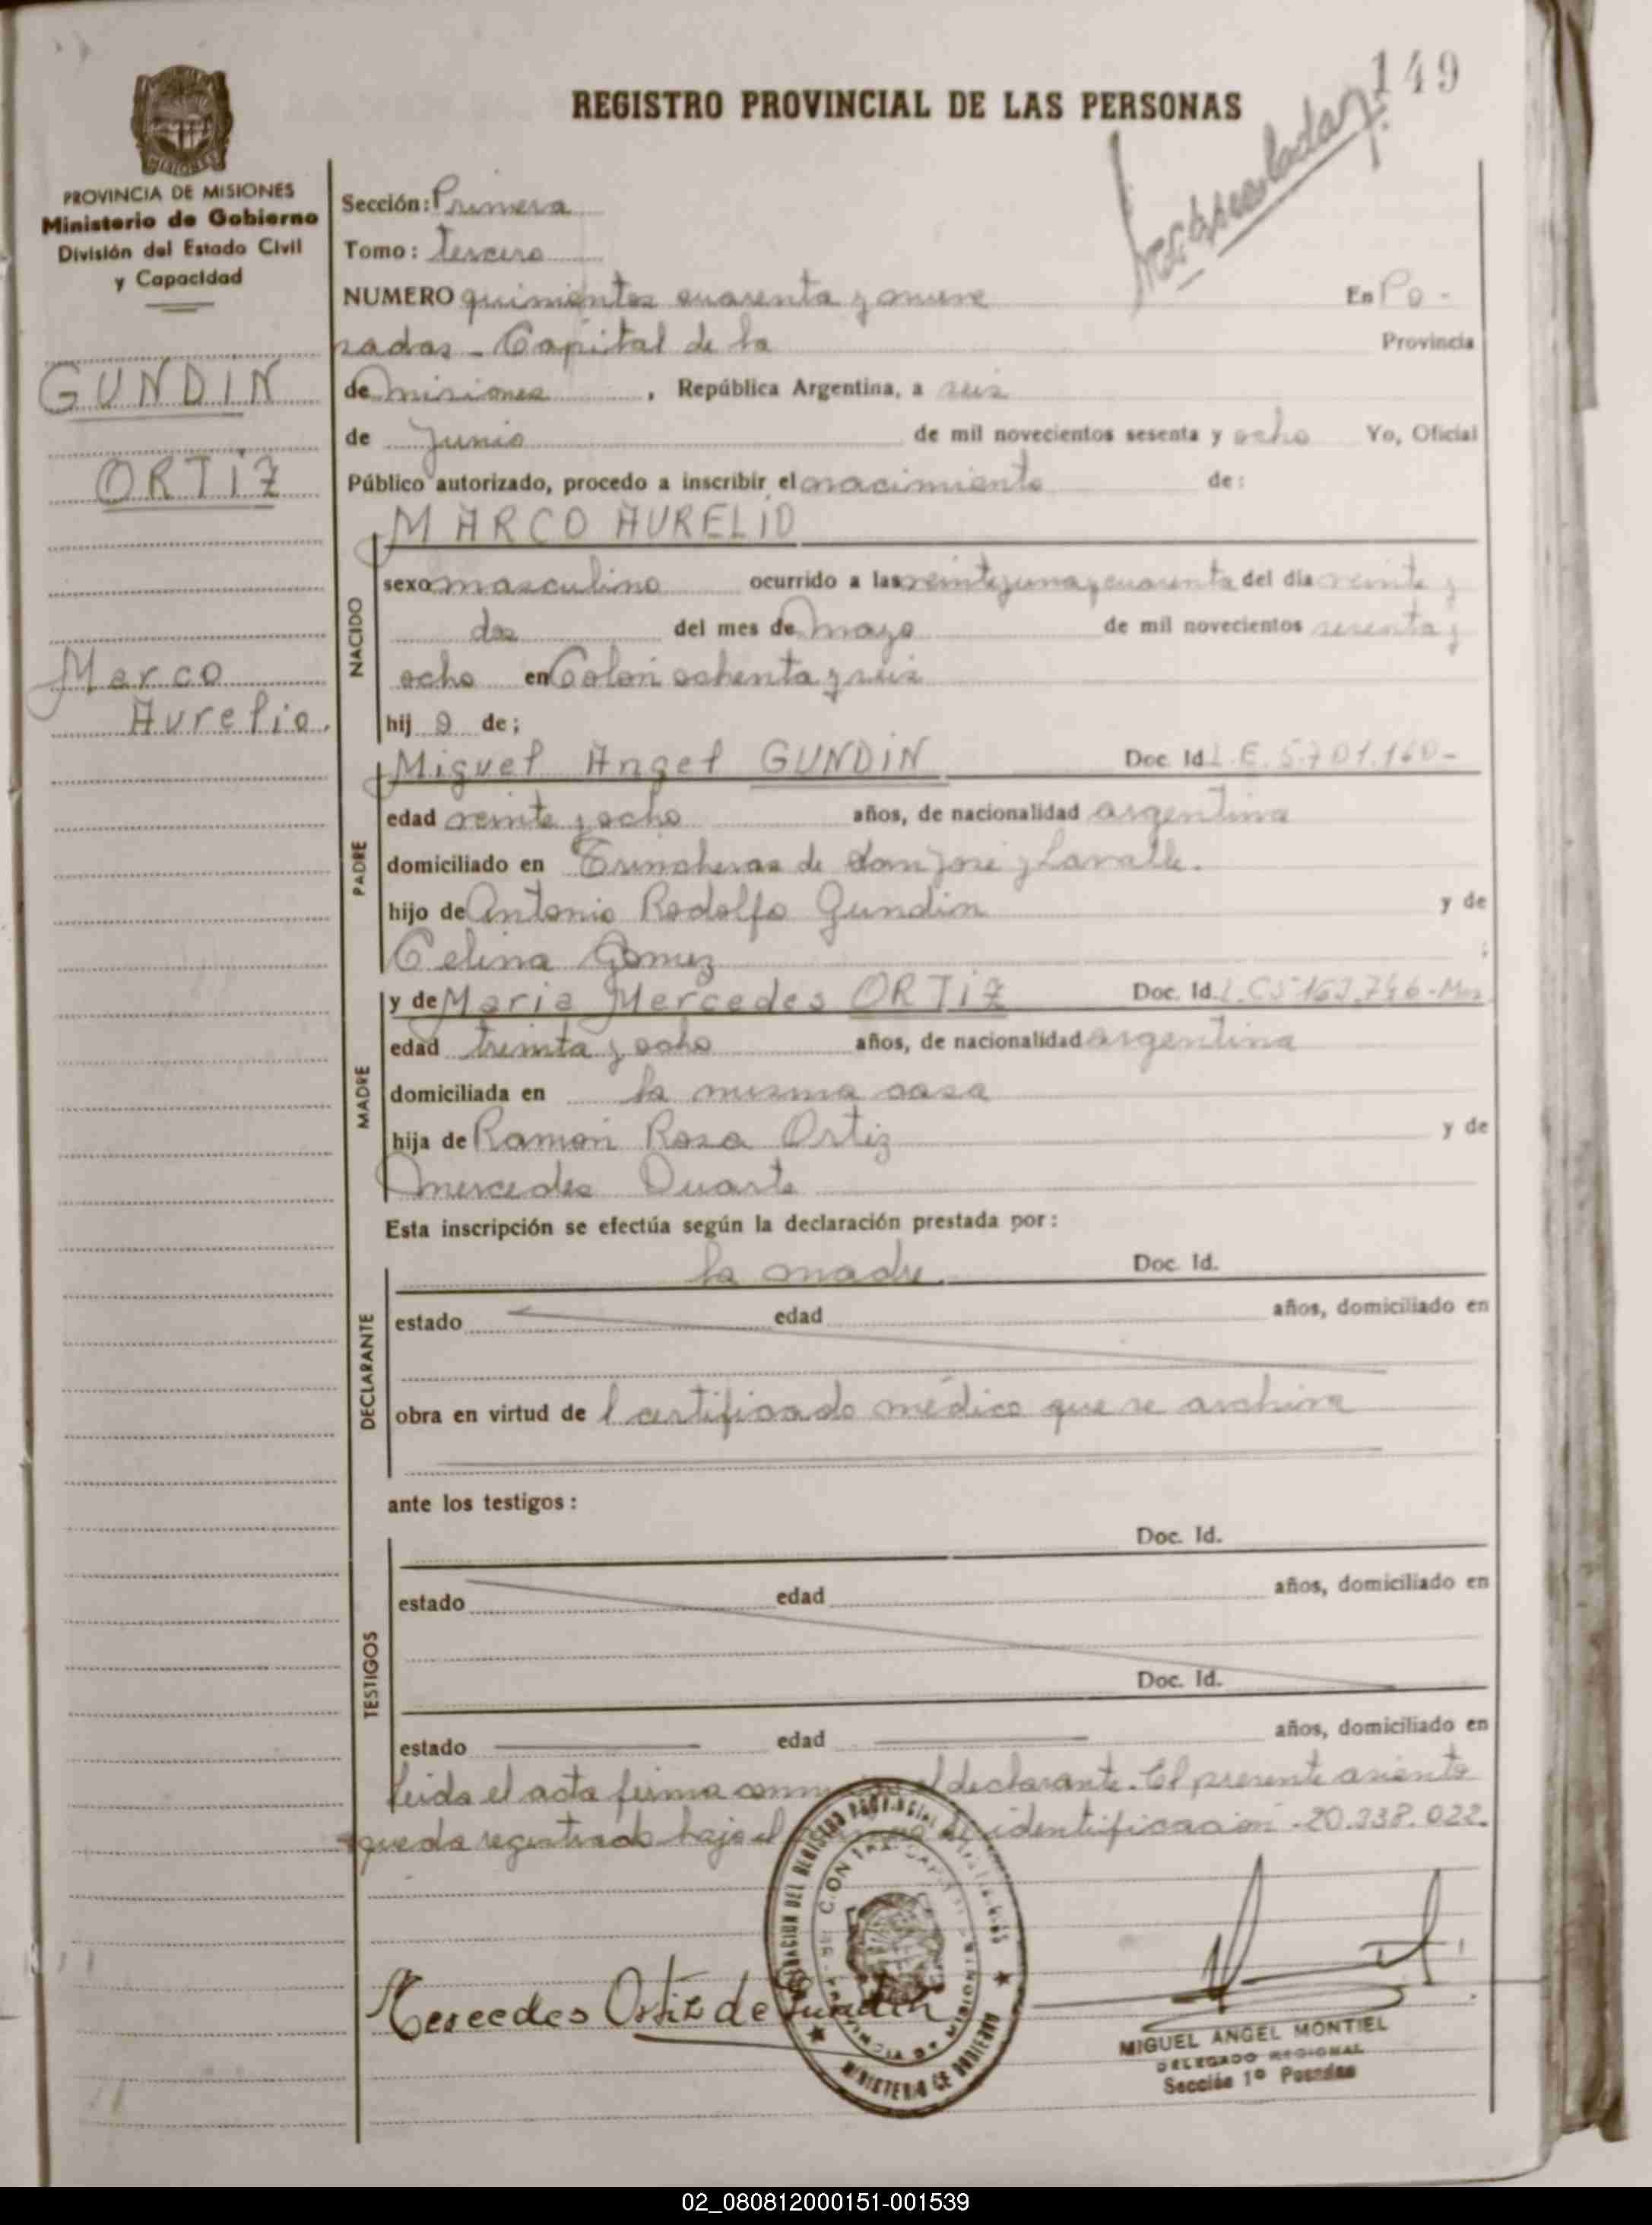 149
REGISTRO PROVINCIAL DE LAS PERSONAS
PROVINCIA DE MISIONES
Ministerio de Gobierno
División del Estado Civil
y Capacidad
GUNDIN
ORTIZ
Marco
Aurelio.
Sección: Primera
Tomo: tercero
NUMERO quinientos cuarenta y nueve En Po-
sadas - Capital de la Provincia
de misiones, República Argentina, a seis
de Junio de mil novecientos sesenta y ocho Yo, Oficial
Público autorizado, procedo a inscribir el nacimiento de:
MARCO AURELIO
NACIDO
sexo masculino ocurrido a las veinte y una y cuarenta del día veinte y
dos del mes de mayo de mil novecientos sesenta y
ocho en Colon ochenta y seis
hij o de;
PADRE
Miguel Angel GUNDIN Doc. Id L.E. 5.701.160-
edad veinte y ocho años, de nacionalidad argentina
domiciliado en Trincheras de San José y Lavalle.
hijo de Antonio Rodolfo Gundin y de
Celina Gomez ;
MADRE
y de Maria Mercedes ORTIZ Doc. Id.
edad treinta y ocho años, de nacionalidad argentina
domiciliada en la misma casa
hija de Ramón Rosa Ortiz y de
mercedes Duarte
Esta inscripción se efectúa según la declaración prestada por:
DECLARANTE
la madre Doc. Id.
estado edad años, domiciliado en
obra en virtud de l certificado médico que se archiva
ante los testigos:
TESTIGOS
Doc. Id.
estado edad años, domiciliado en
Doc. Id.
estado edad años, domiciliado en
Leida el acta firma el declarante. El presente asiento
queda registrado bajo el de identificación -20.338.022.
Mercedes Ortiz de Gundin
MINISTERIO DE GOBIERNO
MIGUEL ANGEL MONTIEL
DELEGADO REGIONAL
Sección 1º Posadas
02_080812000151-001539